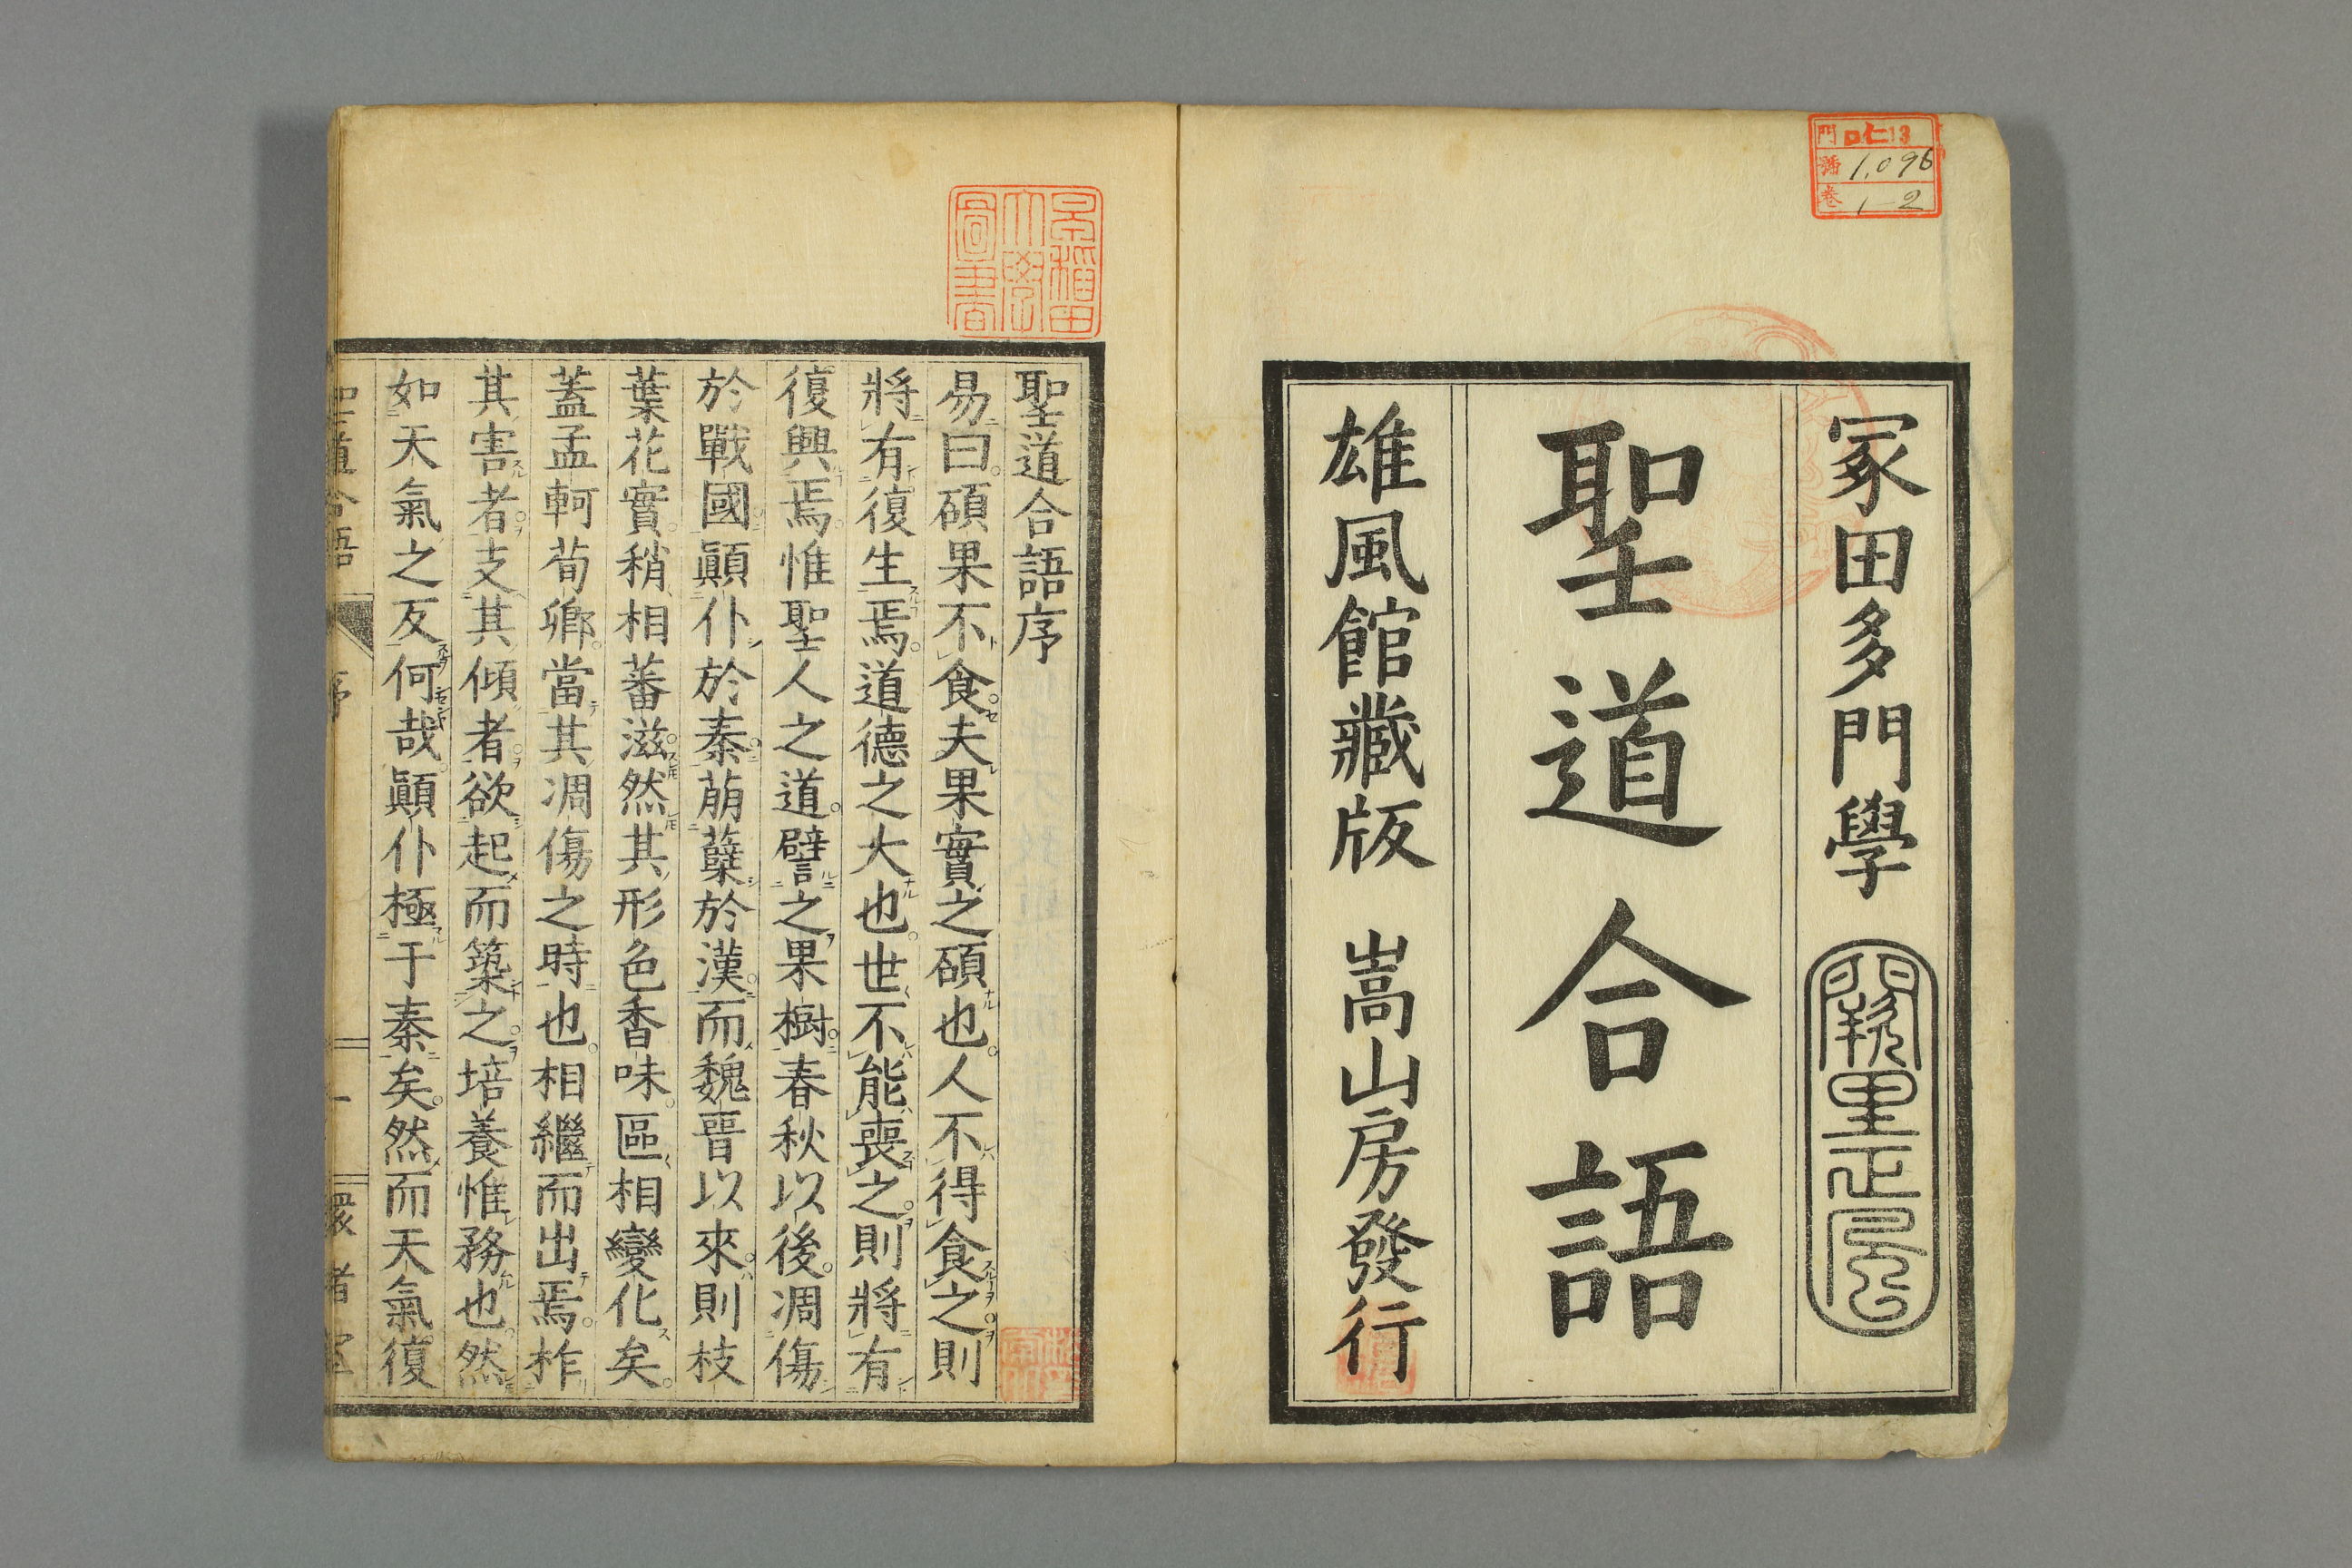 門 ロ仁13
號 1,096
卷 1-2
冢田多門學
闕里正風
聖道合語
雄風館藏版 嵩山房發行
早稲田
大學
圖書
聖道合語序
易曰碩果不食夫果實之碩也人不得食之則
將有復生焉道德之大也世不能喪之則將有
復興焉惟聖人之道譬之果樹春秋以後凋傷
於戰國顚仆於秦萠蘖於漢而魏晉以來則枝
葉花實稍相蕃滋然其形色香味區相變化矣
蓋孟軻荀卿當其凋傷之時也相繼而出焉柞
其害者支其傾者欲起而築之培養惟務也然
如天氣之反何哉顚仆極于秦矣然而天氣復
聖道合語 序 一 環堵室